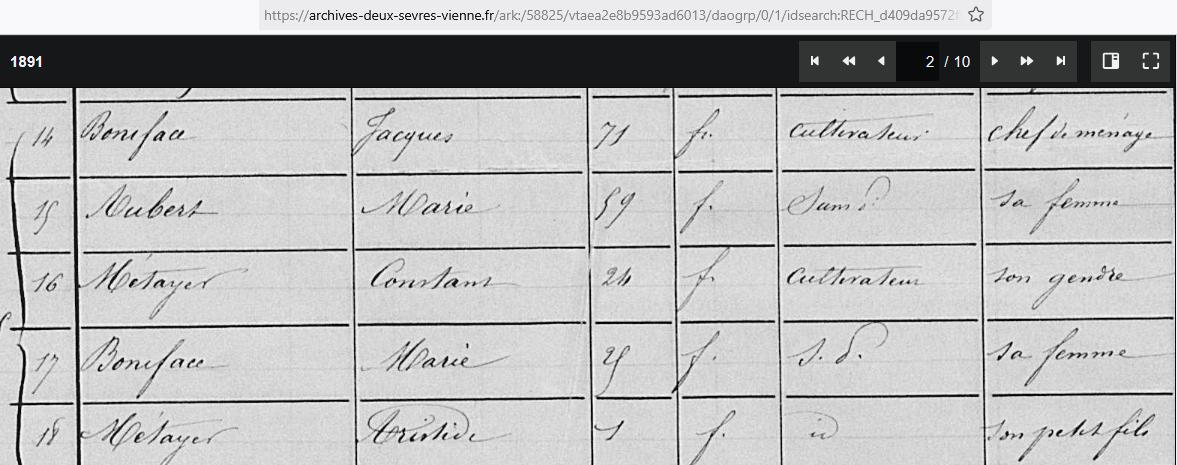 https://archives-deux-sevres-vienne.fr/ark:/58825/vtaea2e8b9593ad6013/daogrp/0/1/idsearch:RECH_d409da9572f
1891 2 / 10
14 Boniface Jacques 71 f. cultivateur chef de ménage
15 Aubert Marie 59 f. sa femme
16 Métayer Constant 24 f. cultivateur son gendre
17 Boniface Marie 25 f. s. d. sa femme
18 Métayer Aristide 1 f. id son petit fils